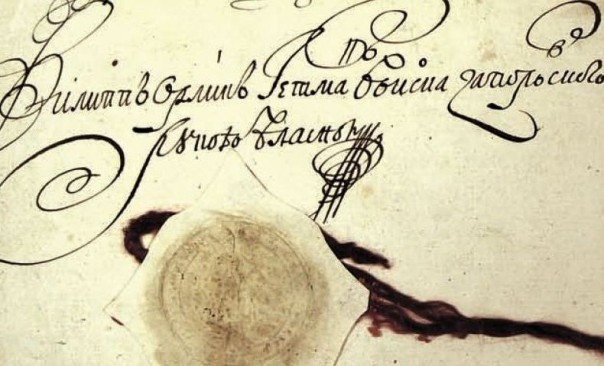 Филиппъ Орликъ Гетма нъ Воиска запорозского
Рукою власною